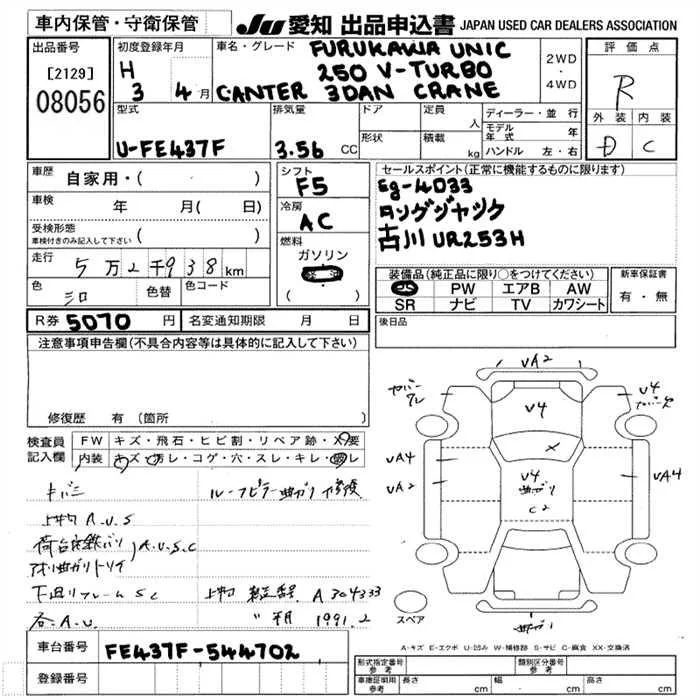 車内保管・守衛保管 JU 愛知 出品申込書 JAPAN USED CAR DEALERS ASSOCIATION
出品番号 [2129] 08056
初度登録年月 H 3 4月
車名・グレード FURUKAWA UNIC
250 V-TURBO
CANTER 3DAN CRANE
2WD・4WD
評価点 R
外装 D 内装 C
型式 U-FE437F
排気量 3.56 CC
ドア 形状
定員 人
積載 kg
ディーラー・並行
モデル年式 年
ハンドル 左・右
車歴 自家用・( )
車検 年 月( 日)
受検形態 車検付きのみ記入して下さい ( )
走行 5万2千938km
色 色替 色コード
シフト F5
冷房 AC
燃料 ガソリン
( )
セールスポイント(正常に機能するものに限ります)
Eg-4D33
タングジャッケ
古川UR253H
装備品(純正品に限り○をつけてください)
PS PW エアB AW
SR ナビ TV カワシート
新車保証書 有・無
R券 5070円 名変通知期限 月 日
後日品
注意事項申告欄(不具合内容等は具体的に記入して下さい)
修復歴 有(箇所 )
検査員記入欄 FW キズ・飛石・ヒビ割・リペア跡・X要
内装 キズ・汚レ・コゲ・穴・スレ・キレ・破レ
キバミ ルーフピラー曲がり 修復
上物 A.U.S
A.U.S.C
下廻りフレーム S.C 上物 製造番号 A304333
各A.U. 〃 年月 1991.2
VA2
V4
V4
X
VA4
VA2
V4
曲がり
C2
VA4
曲がり
スペア
A-キズ E-エクボ U-凹み W-補修跡 S-サビ C-腐食 XX-交換済
車台番号 FE437F-544702
登録番号
形式指定番号 参考 類別区分番号 参考
車庫証明用 参考 長さ cm 幅 cm 高さ cm